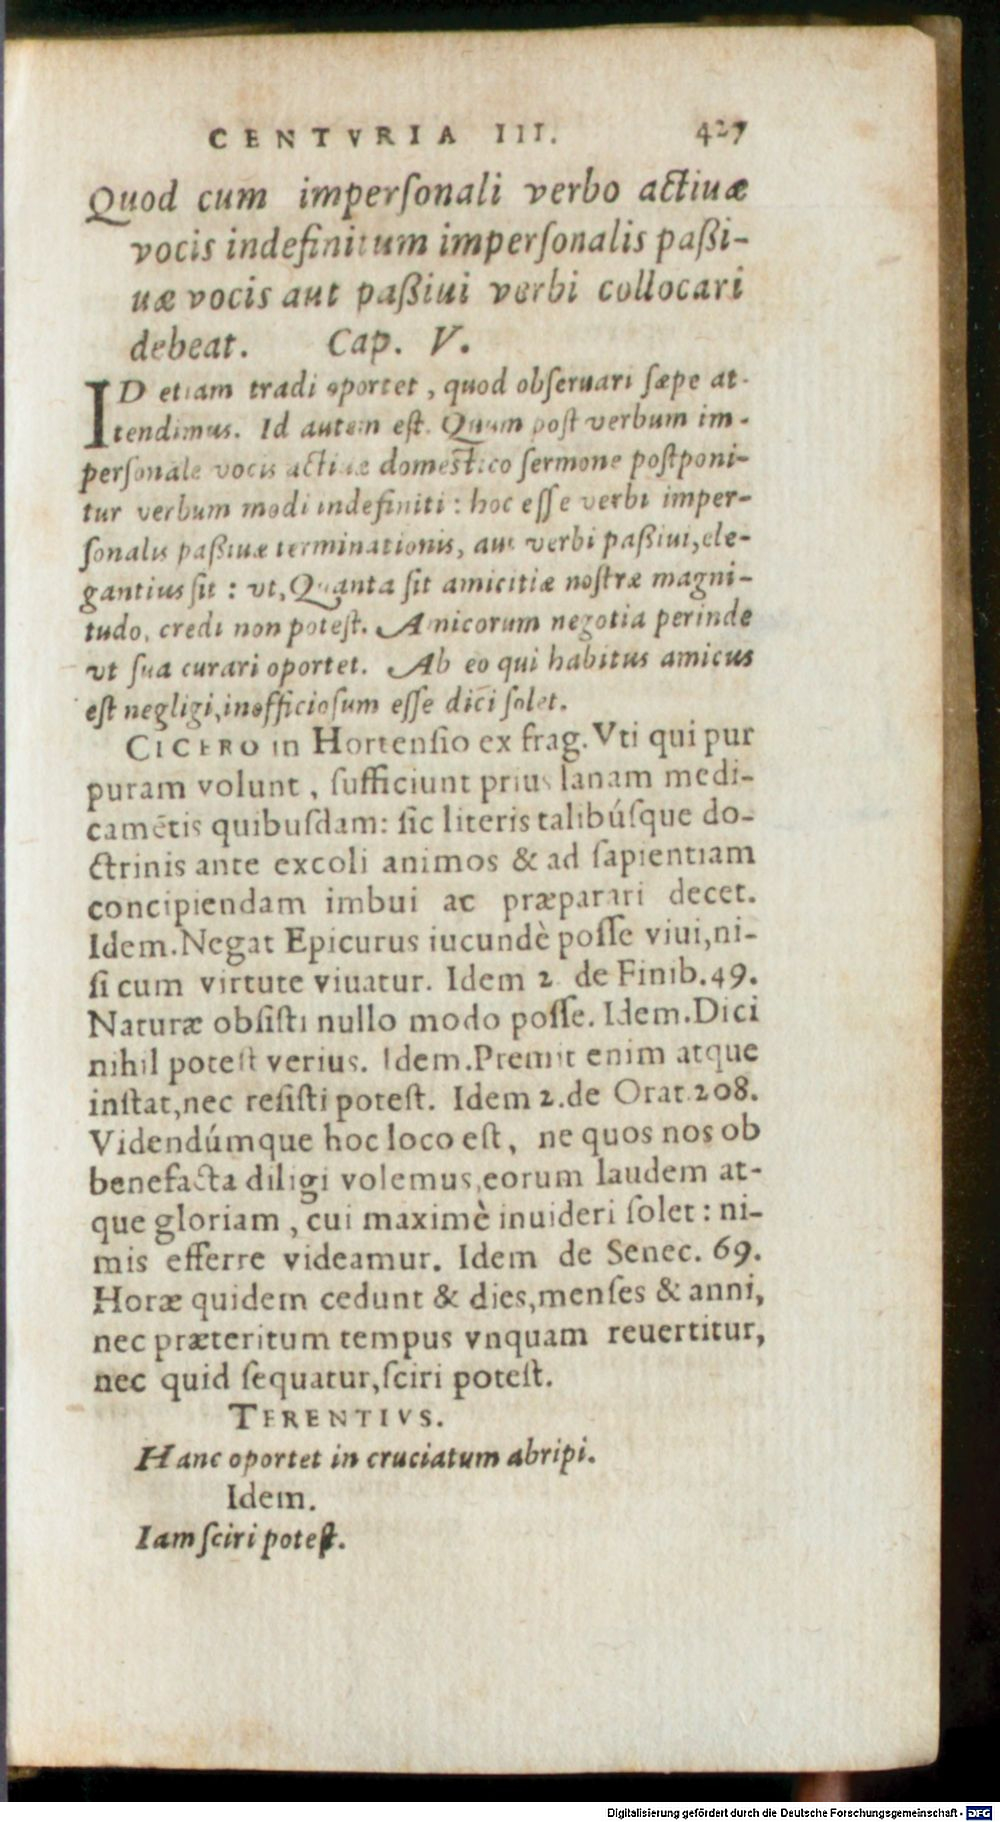 CENTVRIA III. 427
Quod cum imperſonali verbo actiuæ
vocis indefinitum imperſonalis paßi-
uæ vocis aut paßiui verbi collocari
debeat. Cap. V.
ID etiam tradi oportet, quod obſeruari ſæpe at-
tendimus. Id autem eſt. Quum poſt verbum im-
perſonale vocis actiuæ domeſtico ſermone poſtponi-
tur verbum modi indefiniti: hoc eſſe verbi imper-
ſonalis paßiuæ terminationis, aut verbi paßiui, ele-
gantius ſit: vt, Quanta ſit amicitiæ noſtræ magni-
tudo, credi non poteſt. Amicorum negotia perinde
vt ſua curari oportet. Ab eo qui habitus amicus
eſt negligi, inofficioſum eſſe dici ſolet.
CICERO in Hortenſio ex frag. Vti qui pur
puram volunt, ſufficiunt prius lanam medi-
camētis quibuſdam: ſic literis talibúſque do-
ctrinis ante excoli animos & ad ſapientiam
concipiendam imbui ac præparari decet.
Idem. Negat Epicurus iucundè poſſe viui, ni-
ſi cum virtute viuatur. Idem 2 de Finib. 49.
Naturæ obſiſti nullo modo poſſe. Idem. Dici
nihil poteſt verius. Idem. Premit enim atque
inſtat, nec reſiſti poteſt. Idem 2. de Orat. 208.
Videndúmque hoc loco eſt, ne quos nos ob
benefacta diligi volemus, eorum laudem at-
que gloriam, cui maximè inuideri ſolet: ni-
mis efferre videamur. Idem de Senec. 69.
Horæ quidem cedunt & dies, menſes & anni,
nec præteritum tempus vnquam reuertitur,
nec quid ſequatur, ſciri poteſt.
TERENTIVS.
Hanc oportet in cruciatum abripi.
Idem.
Iam ſciri poteſt.
Digitalisierung gefördert durch die Deutsche Forschungsgemeinschaft - DFG